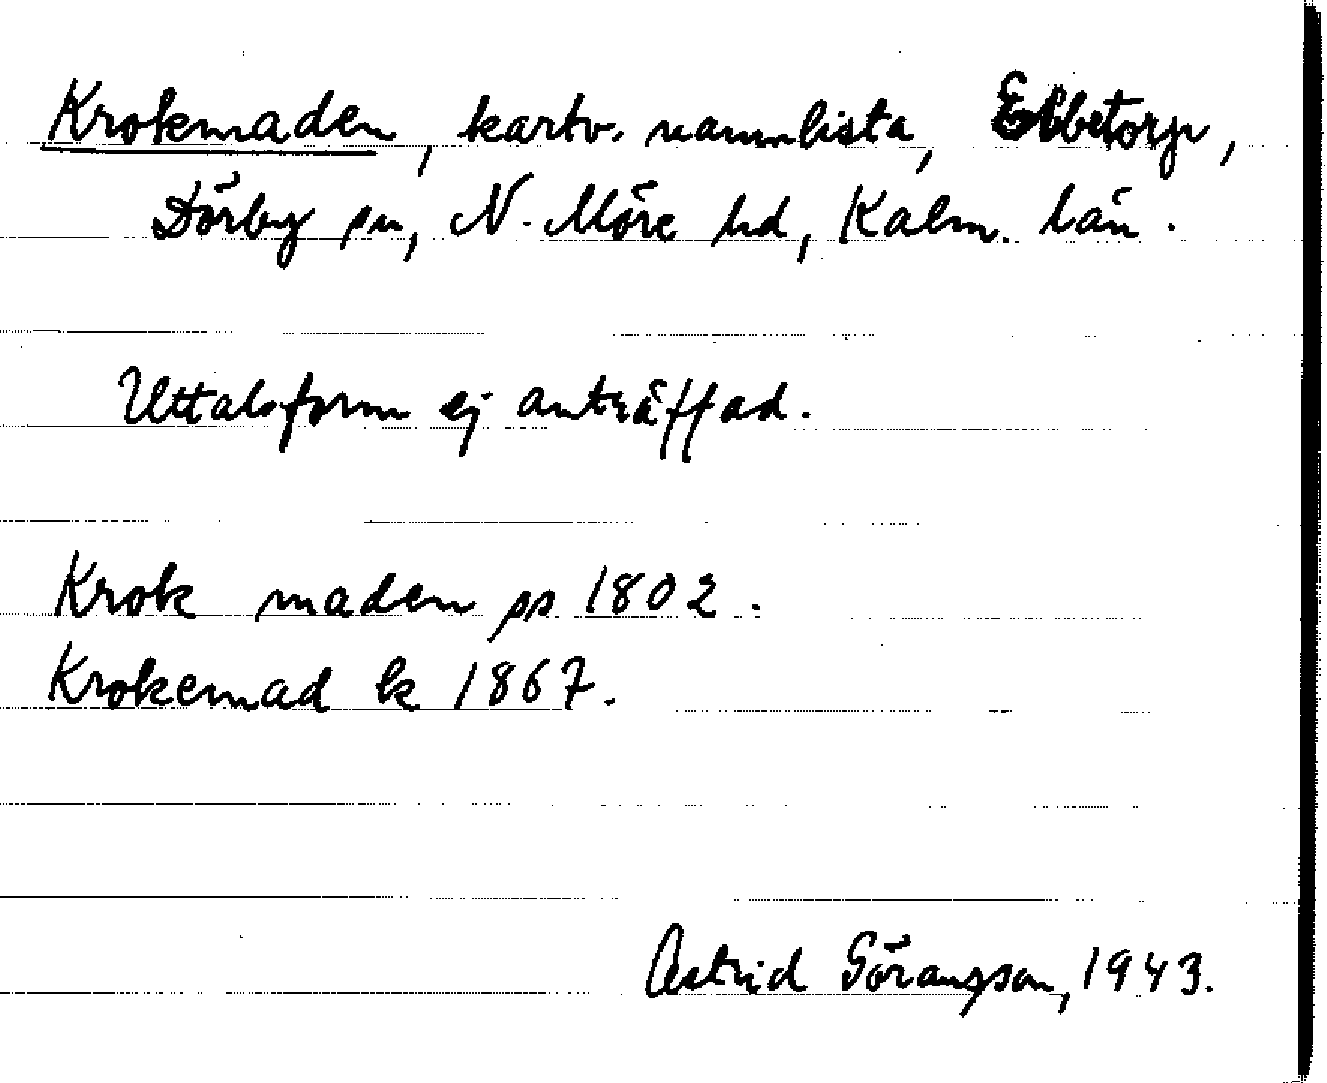 Krokmaden, kartv. namnlista, Ebbetorp,
Dörby sn, N. Möre hd, Kalm. län.
Uttalsform ej anträffad.
Krok maden ps 1802.
Krokemad ek 1867.
Astrid Göransson, 1943.